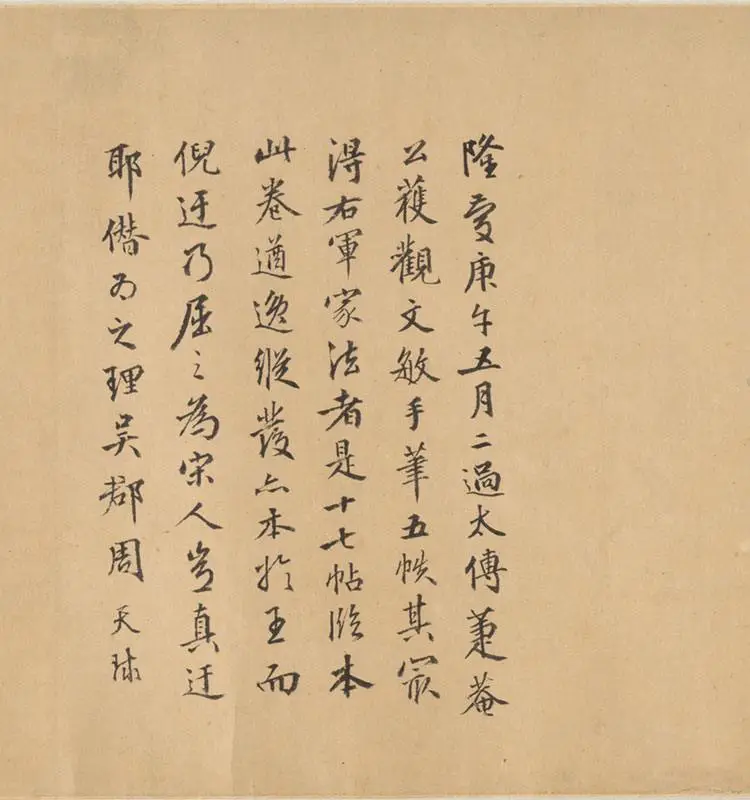 隆慶庚午五月二過太傅蒹菴
公獲觀文敏手筆五帙其最
得右軍家法者是十七帖臨本
此卷遒逸縱發亦本於王而
倪迂乃屈之為宋人豈真迂
耶僭為之理吳郡周天球